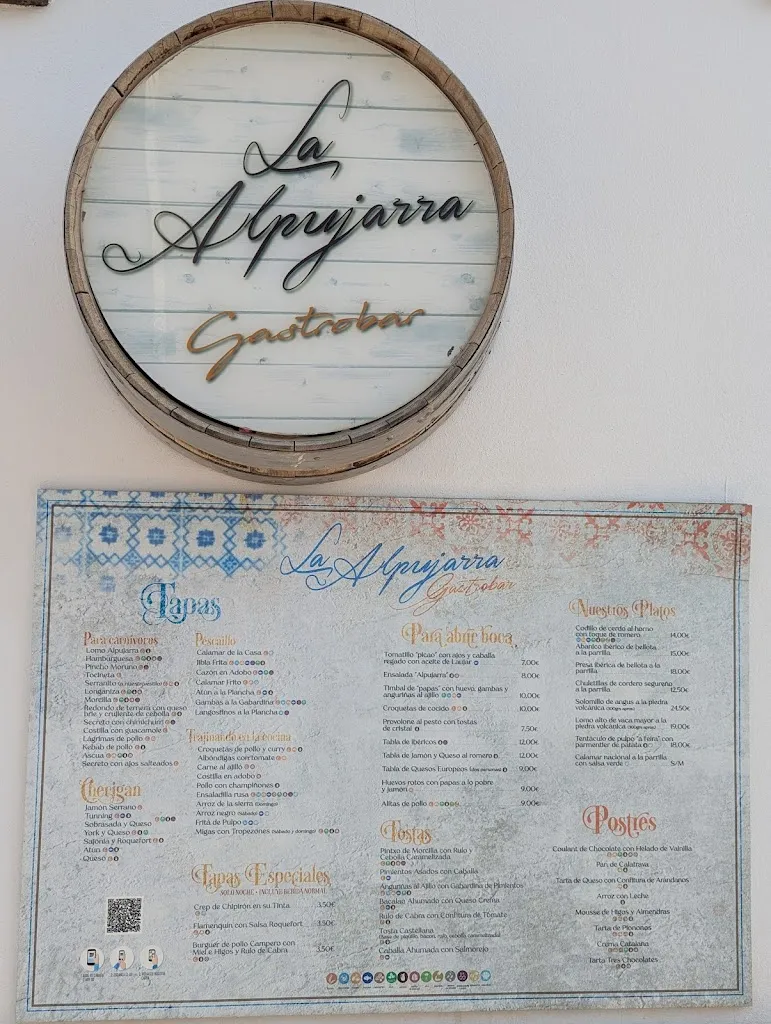 La
Alpujarra
Gastrobar
La Alpujarra
Gastrobar
Tapas
Para carnívoros
Lomo Alpujarra
Hamburguesa
Pincho Moruno
Tocineta
Serranito
Longaniza
Morcilla
Redondo de ternera con queso
brie y crujiente de cebolla
Secreto con chimichurri
Costilla con guacamole
Lágrimas de pollo
Kebab de pollo
Ascua
Secreto con ajos salteados
Cherigan
Jamón Serrano
Tunning
Sobrasada y Queso
York y Queso
Sajonia y Roquefort
Atún
Queso
Pescaíto
Calamar de la Casa
Jibia Frita
Cazón en Adobo
Calamar Frito
Atún a la Plancha
Gambas a la Gabardina
Langostinos a la Plancha
Trajinando en la cocina
Croquetas de pollo y curry
Albóndigas con tomate
Carne al ajillo
Costilla en adobo
Pollo con champiñones
Ensaladilla rusa
Arroz de la sierra (domingo)
Arroz negro (sábado)
Frita de Pulpo
Migas con Tropezones (sábado y domingo)
Tapas Especiales
SOLO NOCHE • INCLUYE BEBIDA NORMAL
Crep de Chipirón en su Tinta 3,50€
Flamenquín con Salsa Roquefort 3,50€
Burguer de pollo Campero con
Miel e Higos y Rulo de Cabra 3,50€
Para abrir boca
Tomatillo "picao" con ajos y caballa
regado con aceite de Lucar 7,00€
Ensalada "Alpujarra" 8,00€
Timbal de "papas" con huevo, gambas y
angurinas al ajillo 10,00€
Croquetas de cocido 10,00€
Provolone al pesto con tostas
de cristal 7,50€
Tabla de Ibéricos 12,00€
Tabla de Jamón y Queso al romero 12,00€
Tabla de Quesos Européos 9,00€
Huevos rotos con papas a lo pobre
y jamón 9,00€
Alitas de pollo 9,00€
Tostas
Pintxo de Morcilla con Rulo y
Cebolla Caramelizada
Pimientos Asados con Caballa
Angurinas al Ajillo con Gabardina de Pimientos
Bacalao Ahumado con Queso Crema
Rulo de Cabra con Confitura de Tomate
Tosta Castellana
Caballa Ahumada con Salmorejo
Nuestros Platos
Codillo de cerdo al horno
con toque de romero 14,00€
Abanico ibérico de bellota
a la parrilla 15,00€
Presa ibérica de bellota a la
parrilla 18,00€
Chuletillas de cordero segureño
a la parrilla 12,50€
Solomillo de angus a la piedra
volcánica 24,50€
Lomo alto de vaca mayor a la
piedra volcánica 19,00€
Tentáculo de pulpo "a feira" con
parmentier de patata 18,00€
Calamar nacional a la parrilla
con salsa verde S/M
Postres
Coulant de Chocolate con Helado de Vainilla
Pan de Calatrava
Tarta de Queso con Confitura de Arándanos
Arroz con Leche
Mousse de Higos y Almendras
Tarta de Piononos
Crema Catalana
Tarta Tres Chocolates